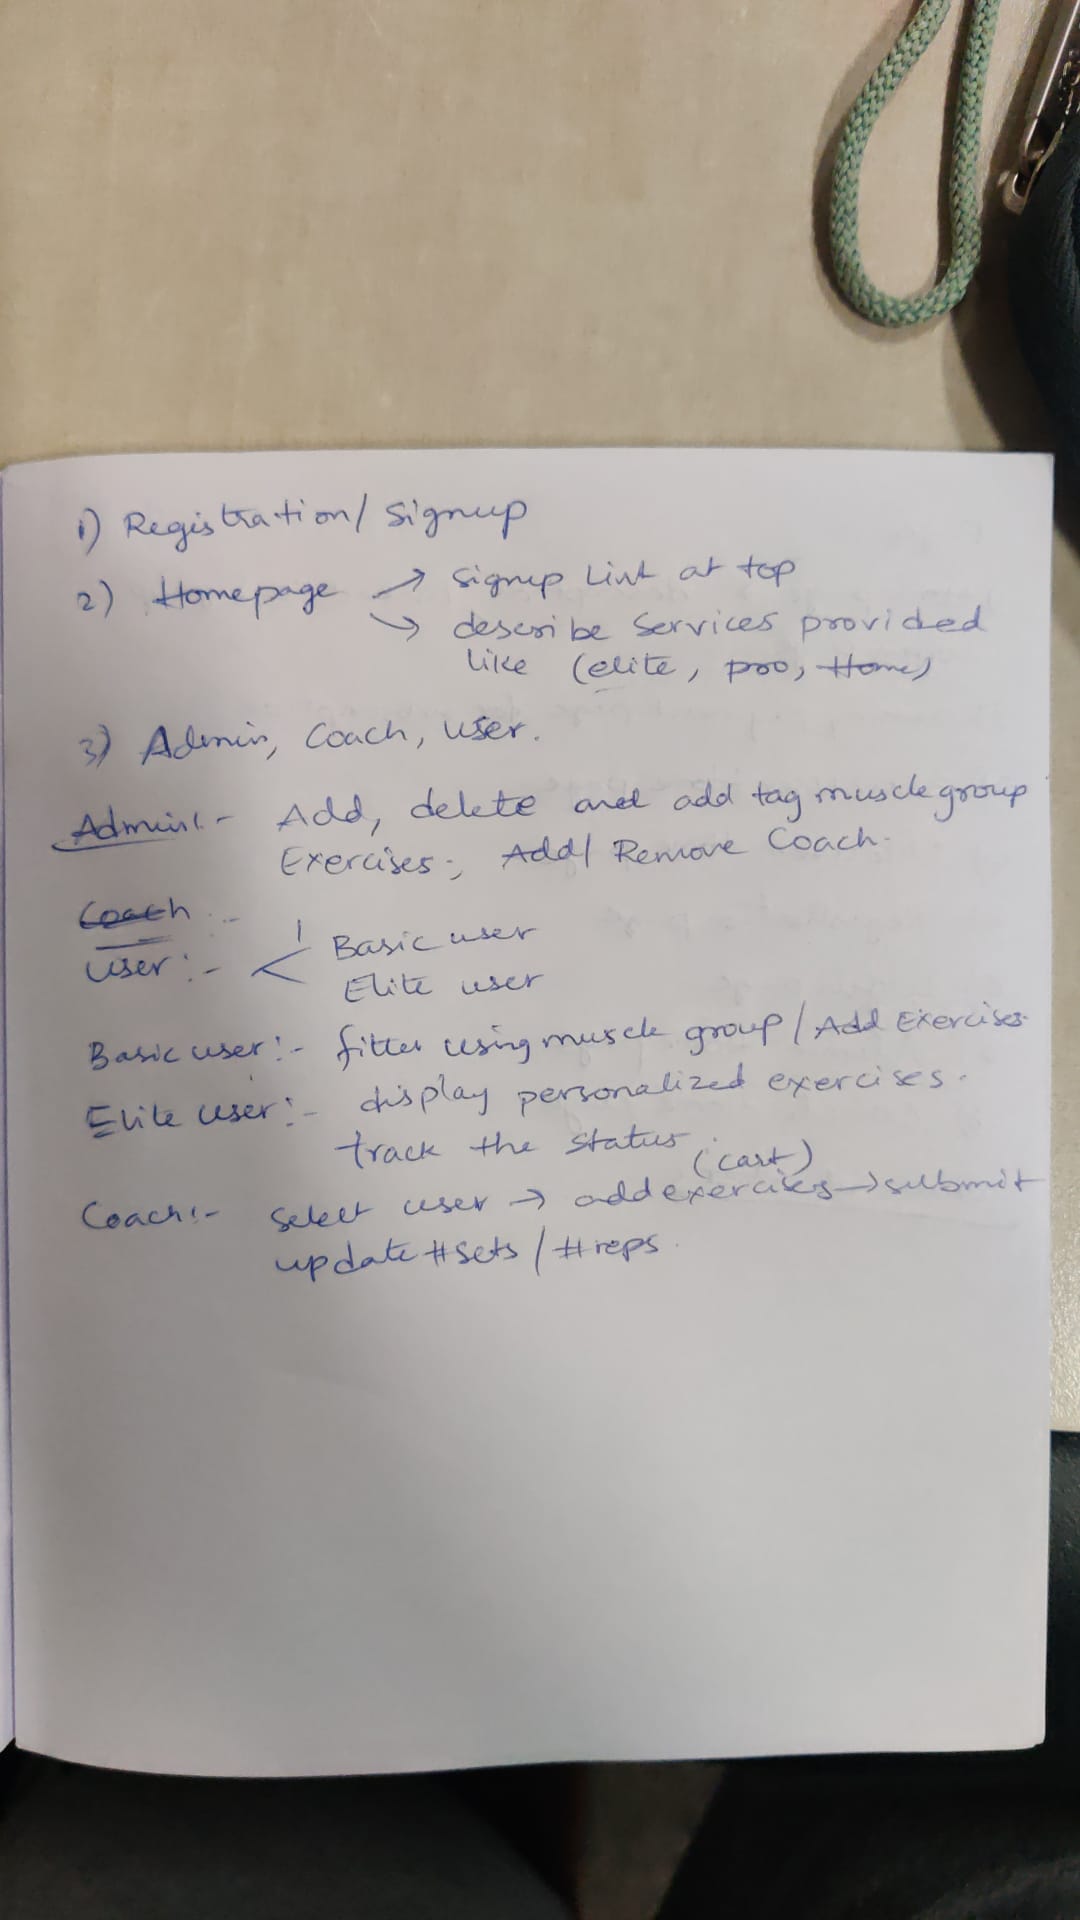 1) Registration/ Signup
2) Homepage → Signup Link at top
→ describe Services provided
like (elite, pro, Home)
3) Admin, Coach, User.
Admin:- Add, delete and add tag muscle group
Exercises; Add/ Remove Coach.
Coach :-
User:- < Basic user
Elite user
Basic user:- filter using muscle group / Add Exercises.
Elite user:- display personalized exercises.
track the status.
(cart)
Coach:- Select user → add exercises → submit
update #sets / #reps.